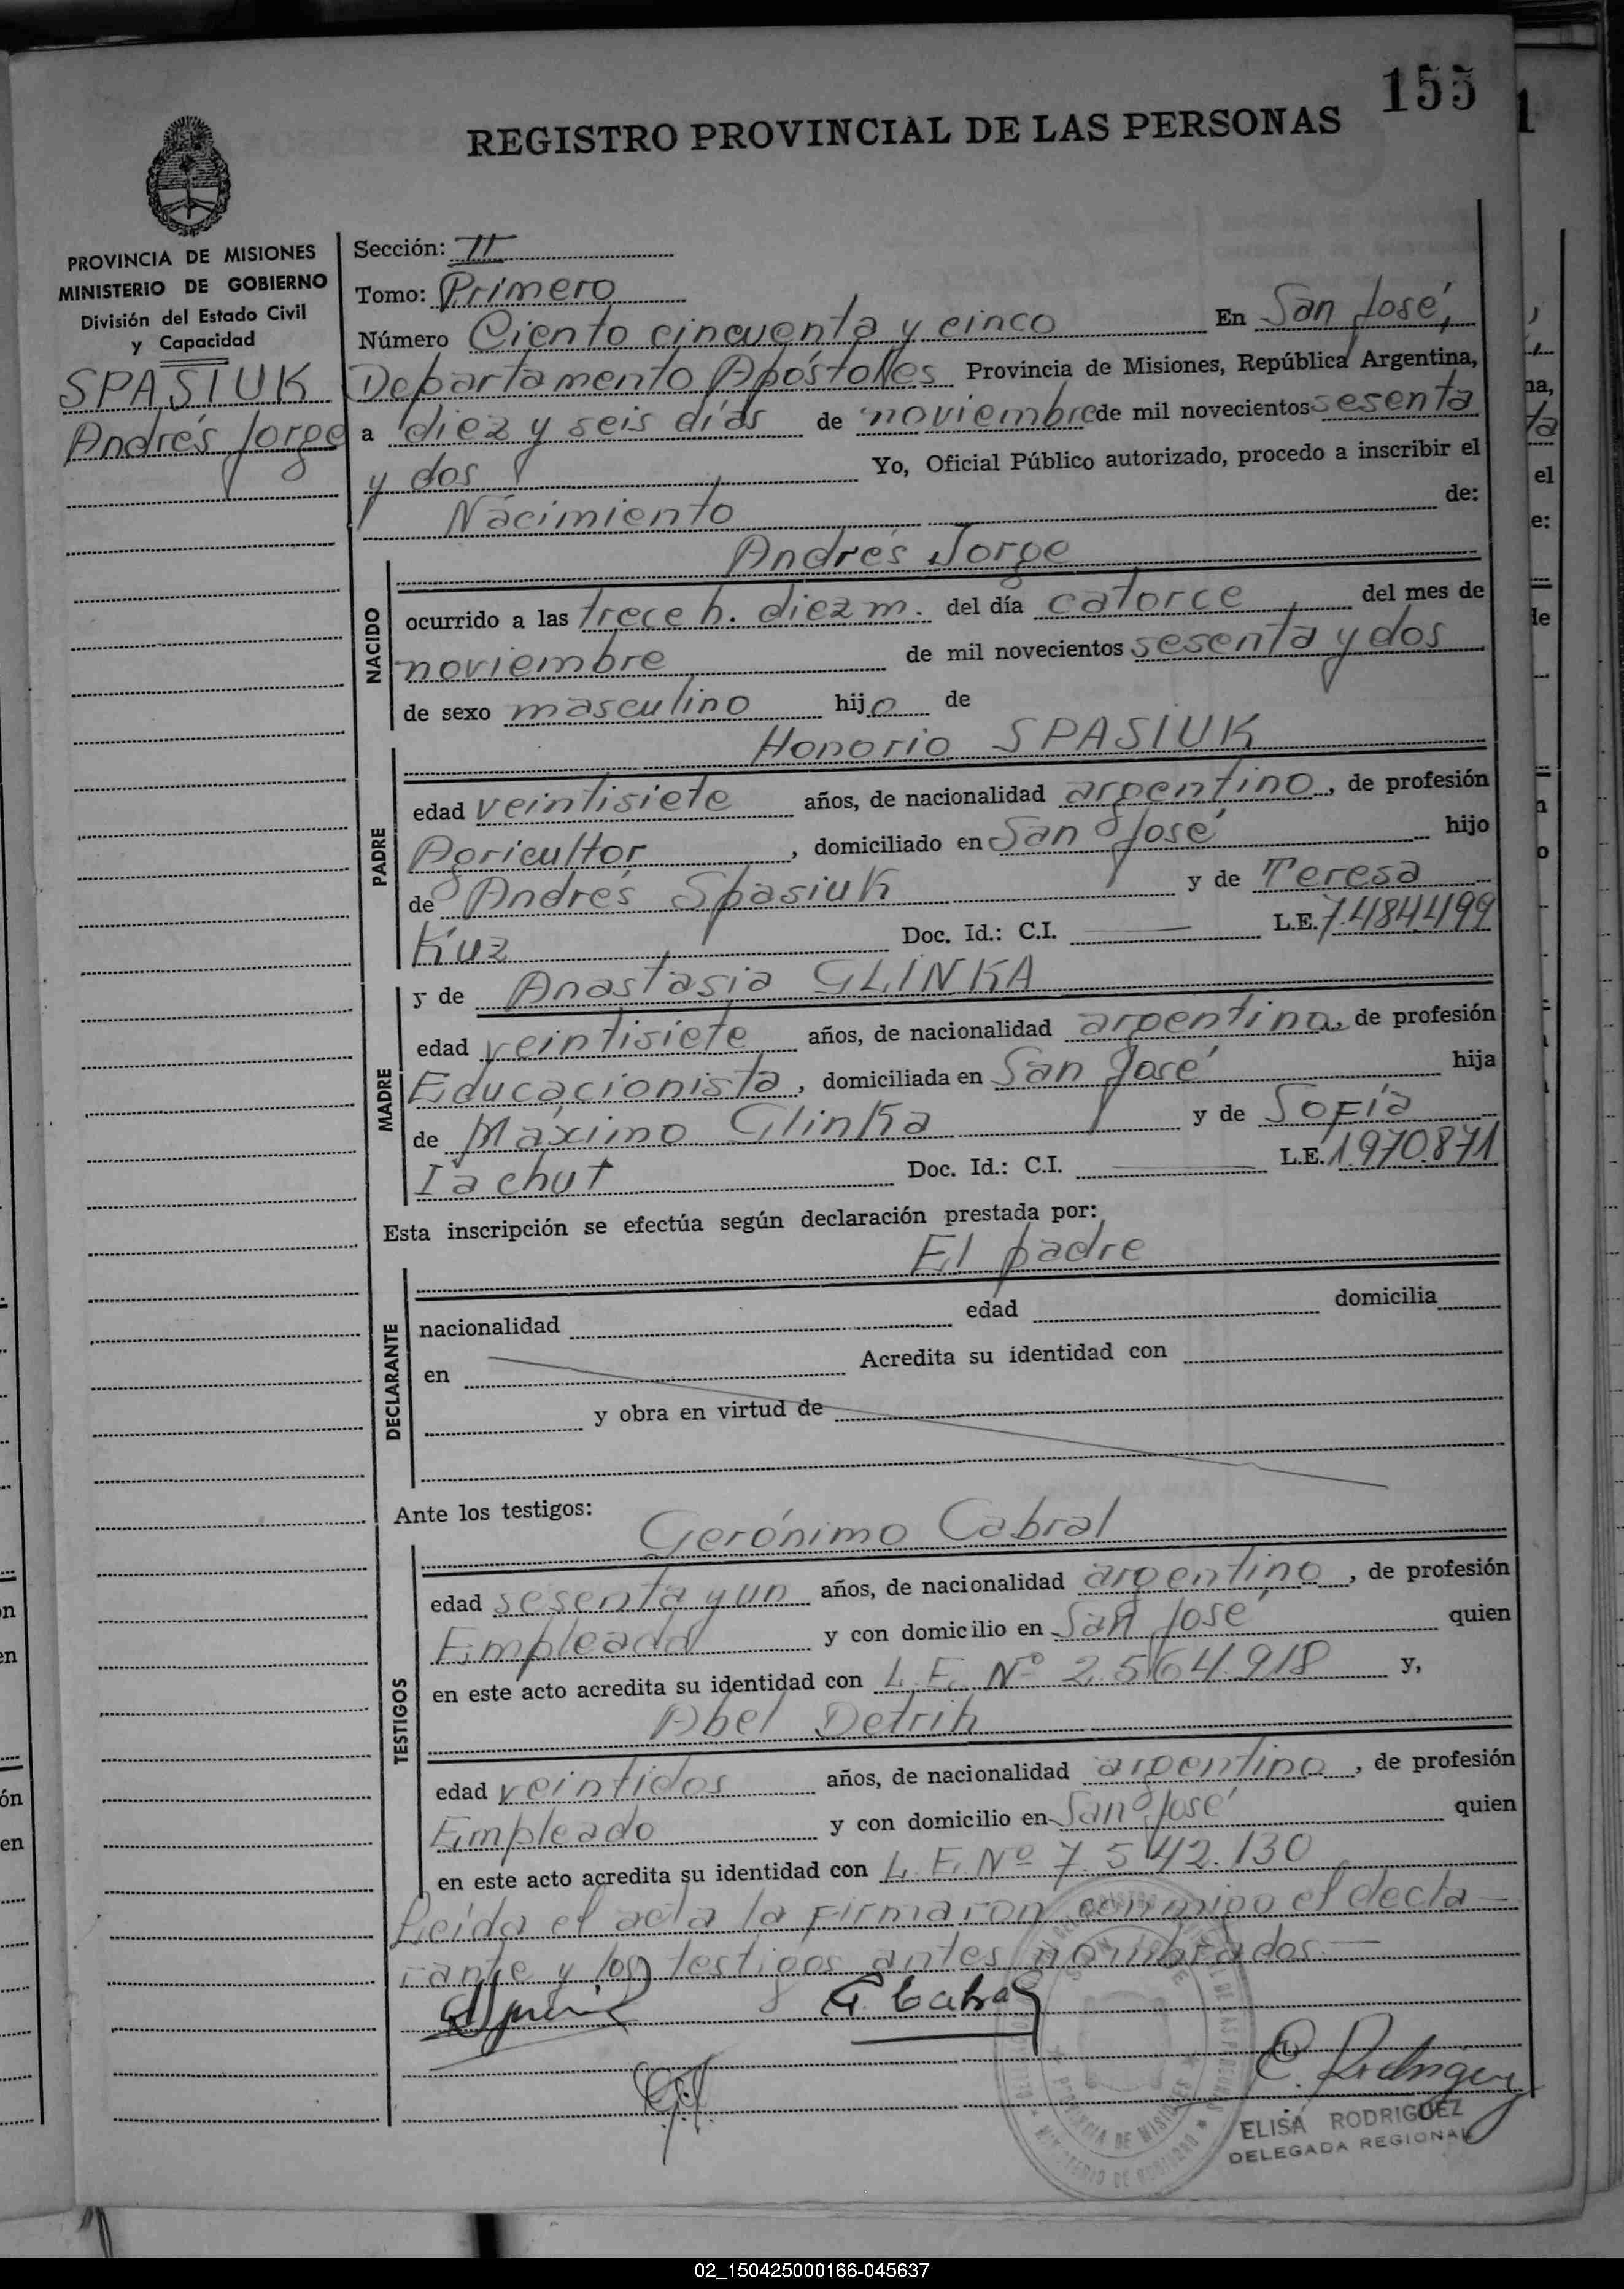 155
REGISTRO PROVINCIAL DE LAS PERSONAS
PROVINCIA DE MISIONES
MINISTERIO DE GOBIERNO
División del Estado Civil
y Capacidad
SPASIUK
Andrés Jorge
Sección: II
Tomo: Primero
Número Ciento cincuenta y cinco En San José,
Departamento Apóstoles Provincia de Misiones, República Argentina,
a diez y seis días de noviembre de mil novecientos sesenta
y dos Yo, Oficial Público autorizado, procedo a inscribir el
Nacimiento de:
Andrés Jorge
NACIDO
ocurrido a las trece h. diez m. del día catorce del mes de
noviembre de mil novecientos sesenta y dos
de sexo masculino hijo de
Honorio SPASIUK
PADRE
edad veintisiete años, de nacionalidad argentino, de profesión
Agricultor, domiciliado en San José hijo
de Andrés Spasiuk y de Teresa
Kuz Doc. Id.: C.I. L.E. 7.484.499
MADRE
y de Anastasia GLINKA
edad veintisiete años, de nacionalidad argentina, de profesión
Educacionista, domiciliada en San José hija
de Máximo Glinka y de Sofía
Iachut Doc. Id.: C.I. L.E. 1.970.871
Esta inscripción se efectúa según declaración prestada por:
El padre
DECLARANTE
nacionalidad edad domicilia
en Acredita su identidad con
y obra en virtud de
Ante los testigos:
Gerónimo Cabral
TESTIGOS
edad sesenta y un años, de nacionalidad argentino, de profesión
Empleado y con domicilio en San José quien
en este acto acredita su identidad con L.E. Nº 2.564.918 y,
Abel Detrih
edad veintidos años, de nacionalidad argentino, de profesión
Empleado y con domicilio en San José quien
en este acto acredita su identidad con L.E. Nº 7.542.130
Leída el acta la firmaron conmigo el decla-
rante y los testigos antes nombrados.—
G. Cabral
E. Rodriguez
ELISA RODRIGUEZ
DELEGADA REGIONAL
PROVINCIA DE MISIONES
MINISTERIO DE GOBIERNO
02_150425000166-045637